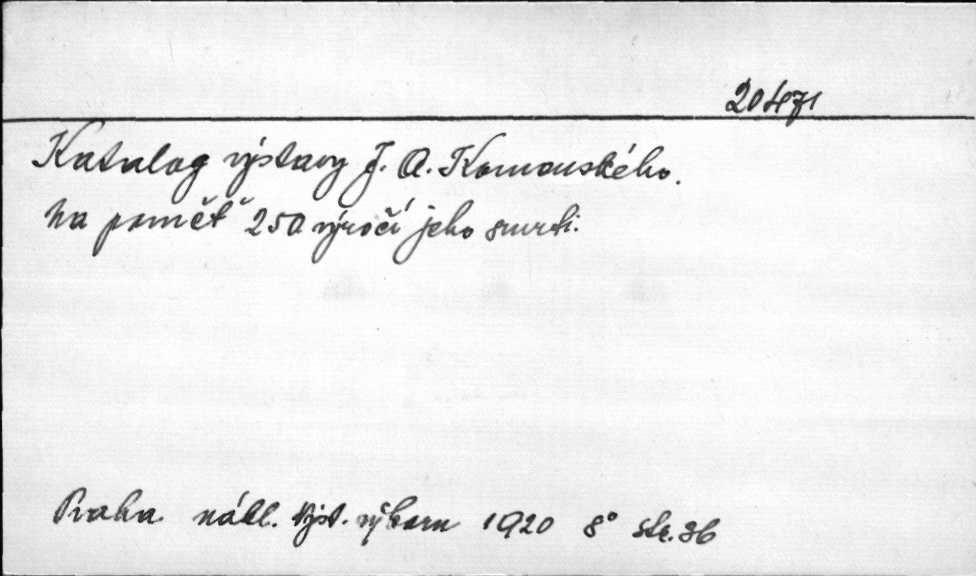 20471
Katalog výstavy J. A. Komenského.
na pamět 250 výročí jeho smrti.
Praha nákl. výst. výboru 1920 8° str. 36